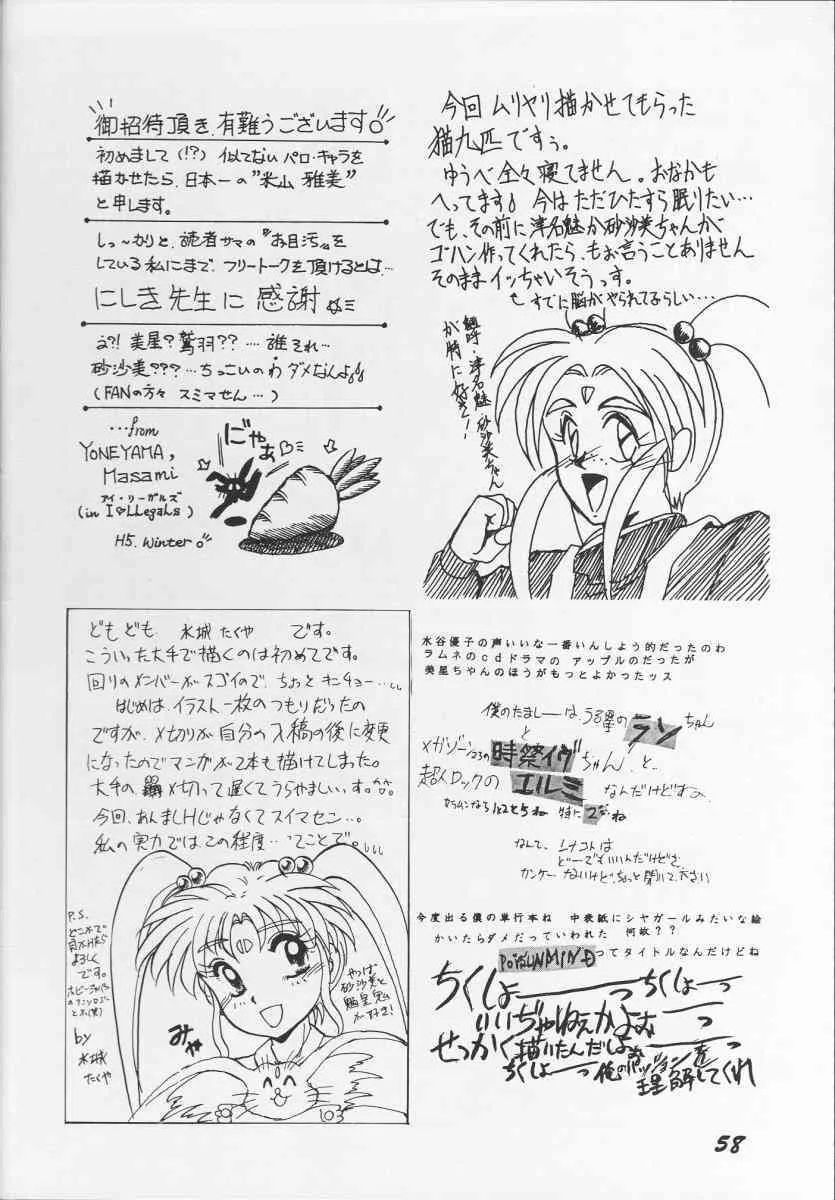 御招待頂き、有難うございます。
初めまして(!?) 似てない パロ・キャラを
描かせたら、日本一の"米山 雅美"
と申します。
しっ〜かりと、読者サマの"お目汚"を
している私にまで、フリートークを頂けるとは…
にしき先生に 感謝
え?! 美星? 鷲羽?? …. 誰 それ…
砂沙美???… ちっこいのわ ダメなんよ
(FANの方々 スミマせん…)
…from
YONEYAMA,
Masami
アイ・リーガルズ
(in I♡LLegaLs)
H5. Winter。
にゃあ
今回 ムリヤリ描かせてもらった
猫九匹ですぅ。
ゆうべ全々寝てません。おなかも
へってます 今はただひたすら眠りたい…
でも、その前に津名魅か砂沙美ちゃんが
ゴハン作ってくれたら、もお言うことありません
そのままイッちゃいそうっす。
すでに脳がやられてるらしい…
魎呼・津名魅 砂沙美ちゃん
が特に好き!
どもども 水城 たくや です。
こういった大手で描くのは初めてです。
回りのメンバーがスゴイので、ちょっとキンチョー…
はじめは、イラスト一枚のつもりだったの
ですが、〆切りが自分の入稿の後に変更
になったのでマンガが2本も描けてしまった。
大手の 〆切って遅くてうらやましいっす。
今回、あんましHじゃなくてスイマセン…。
私の実力ではこの程度…てことで。
P.S.
どこかで
見かけたら
よろしく
です。
by
水城
たくや
みゃ
やっぱ
砂沙美と
魎皇鬼
が好き!
水谷優子の声いいな一番いんしよう的だったのわ
ラムネのcdドラマの アップルのだったが
美星ちゃんのほうがもっとよかったッス
僕のたましーは、うる星のランちゃん
と
メガゾーン23の時祭イヴちゃん、と、
超人ロックのエルミ なんだけどすよ。
特に
なんて、
どーでもいいんだけどさ、
カンケーないけど、ちょっと聞いて、ださい
今度出る僕の単行本ね 中表紙にシヤガールみたいな絵
かいたらダメだっていわれた 何故??
POiSUNMINDってタイトルなんだけどね
ちくしょーーっちくしょーーっ
いいぢゃねぇかよぉーーっ
せっかく描いたんだしよぉーーっ
ちくしょーーっ俺のパッションを
理解してくれ
58